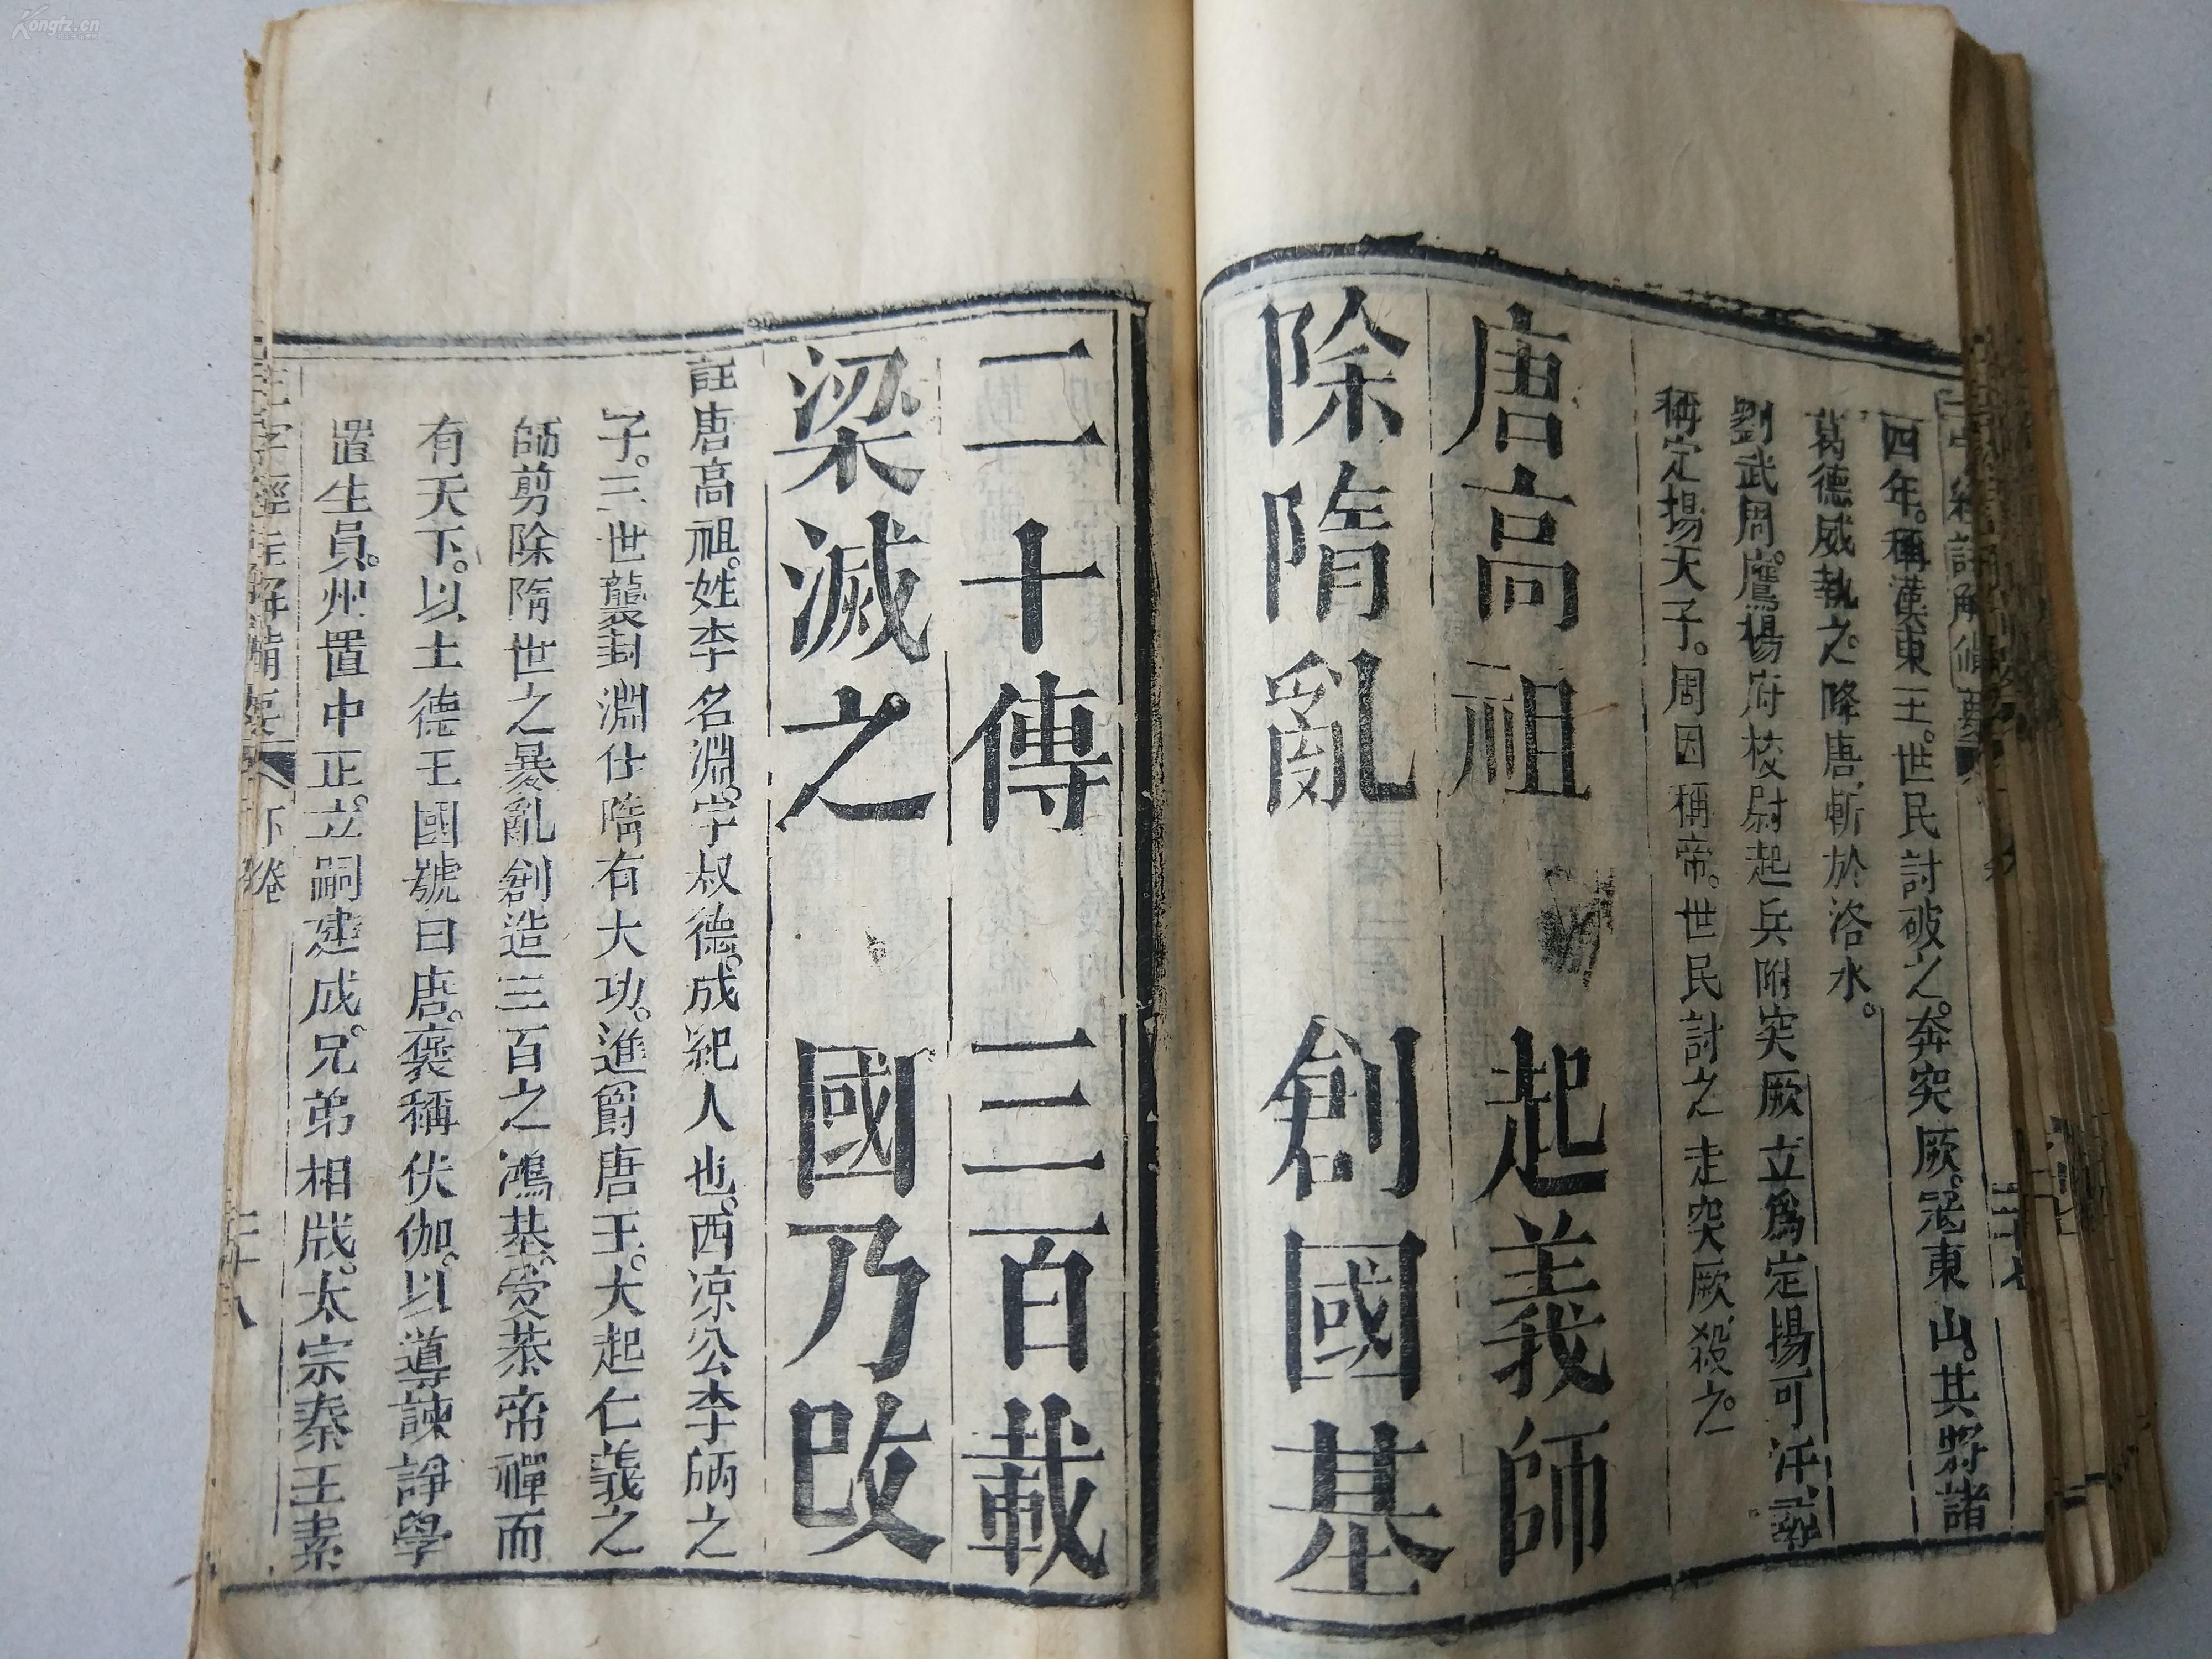 四年。稱漢東王。世民討破之。奔突厥。冦東山。其將諸
葛德威執之。降唐斬於洛水。
劉武周。鷹揚府校尉起兵附突厥立爲定揚可汗
稱定揚天子。周因稱帝。世民討之走突厥殺之。
唐高祖 起義師
除隋亂 創國基
二十傳 三百載
梁滅之 國乃改
註唐高祖。姓李名淵。字叔德。成紀人也。西凉公李昞之
子。三世襲封淵仕隋有大功。進爵唐王。大起仁義之
師剪除隋世之暴亂創造三百之鴻基。受恭帝禪而
有天下。以土德王國號曰唐。褒稱伏伽。以導諫諍學
置生員。州置中正。立嗣建成。兄弟相戕。太宗秦王素
三字經註解備要 下卷 二十八
Kongfz.cn